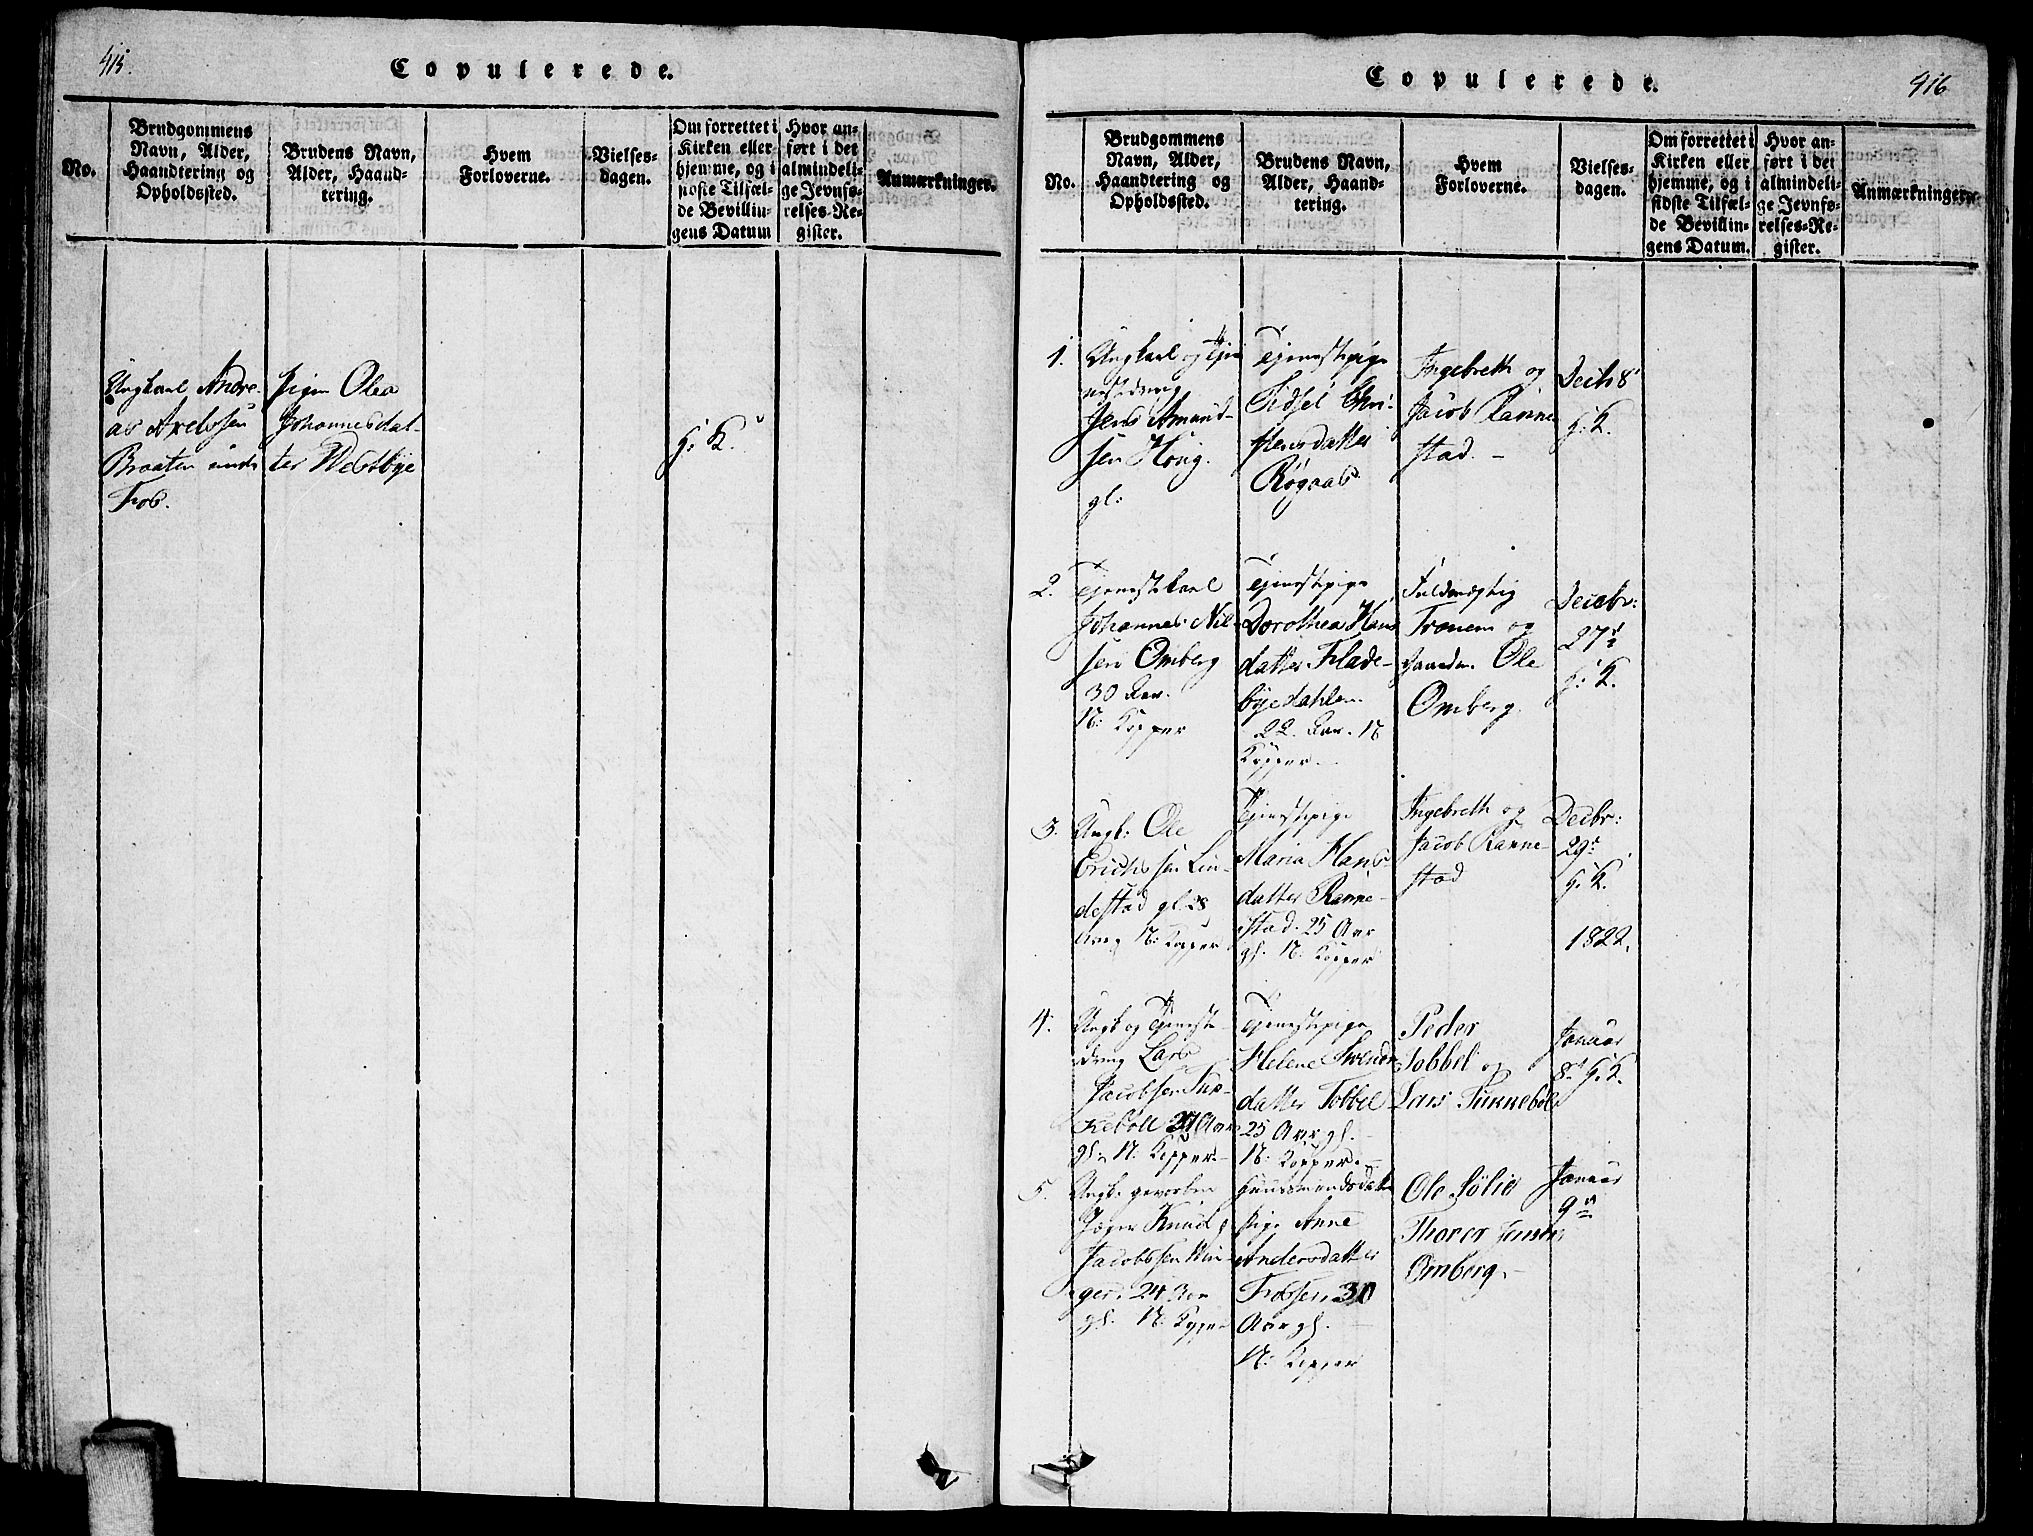 415.
Copulerede.
No.
Brudgommens
Navn, Alder,
Haandtering og
Opholdssted.
Brudens Navn,
Alder, Haand-
tering.
Hvem
Forloverne.
Vielses-
dagen.
Om forrettet i
Kirken eller
hjemme, og i
sidste Tilfæl-
de Bevillin-
gens Datum
Hvor an-
ført i det
almindeli-
ge Jevnfø-
relses-Re-
gister.
Anmærkninger.
Ungkarl Andre-
as Axelssen
Braaten
Fos.
Pigen Olea
Johannesdat-
ter Westbye
h: K.
416
Copulerede.
No.
Brudgommens
Navn, Alder,
Haandtering og
Opholdssted.
Brudens Navn,
Alder, Haand-
tering.
Hvem
Forloverne.
Vielses-
dagen.
Om forrettet i
Kirken eller
hjemme, og i
sidste Tilfæl-
de Bevillin-
gens Datum.
Hvor an-
ført i det
almindeli-
ge Jevnfø-
relses-Re-
gister.
Anmærkninger.
1.
Ungkarl og Tje-
nestedreng
Jens Amund-
sen Houg.
gl:
Tjenestepige
Sidsel Chri-
stensdatter
Røgaas
Ingebreth og
Jacob Ranne
stad. -
Decbr 8
h: K.
2.
Tjenestekarl
Johannes Nil-
sen Omberg
30 Aar.
N: Kopper
Tjenestepige
Dorothea Hans
datter Flade-
byedahlen
22. Aar. N
Kopper.
Fuldmægtig
Tronem og
Ole
Omberg.
Decbr:
27de
h: K.
3.
Ungk: Ole
Erichssen Lin-
destad gl: 28
Aar N: Kopper
Tjenestepige
Maria Hans
datter Ranne-
stad. 25 Aar
gl. N: Kopper
Ingebreth og
Jacob Ranne-
stad
Decbr:
29de
h. K.
1822.
4.
Ungk og Tjeneste-
dreng Lars
Jacobsen Tuk-
keboll Aar
gl. N: Kopper.
Tjenestepige
Helene Svends
datter Tobbel
25 Aar gl.
N: Kopper.
Peder
Tobbel og
Lars Tukkeboll
Januar
8de h: K.
5.
Ungk. gevorben
Jæger Knud
Jacobssen Win-
ger. 24 Aar
gl. N: Kopper
Huusmandsdatter
Pige Anne
Andersdatter
Fossen, 30
Aar gl.
N: Kopper
Ole Sølie
Thorer Jensen
Omberg. -
Januar
9de